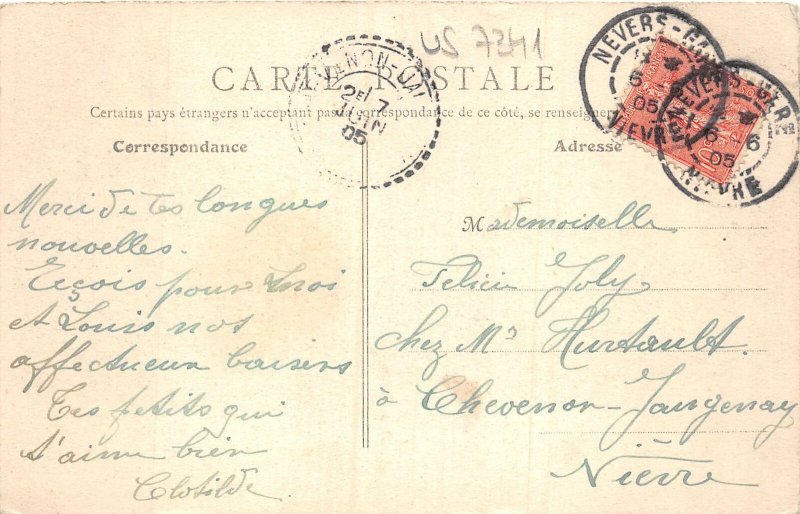 US 7241
CARTE POSTALE
Certains pays étrangers n'acceptent pas la correspondance de ce côté, se renseigner
Correspondance
Adresse
NEVERS-GARE
6-6
05
NIÈVRE
NEVERS-GARE
6-6
05
NIÈVRE
2E/7
JUIN
05
Merci de tes longues
nouvelles.
Reçois pour Moi
et Louis nos
affectueux baisers
Tes petits qui
t'aime bien
Clotilde
Mademoiselle
Felicie Joly
chez Mr Hurtault
à Chevenon-Jaugenay
Nièvre